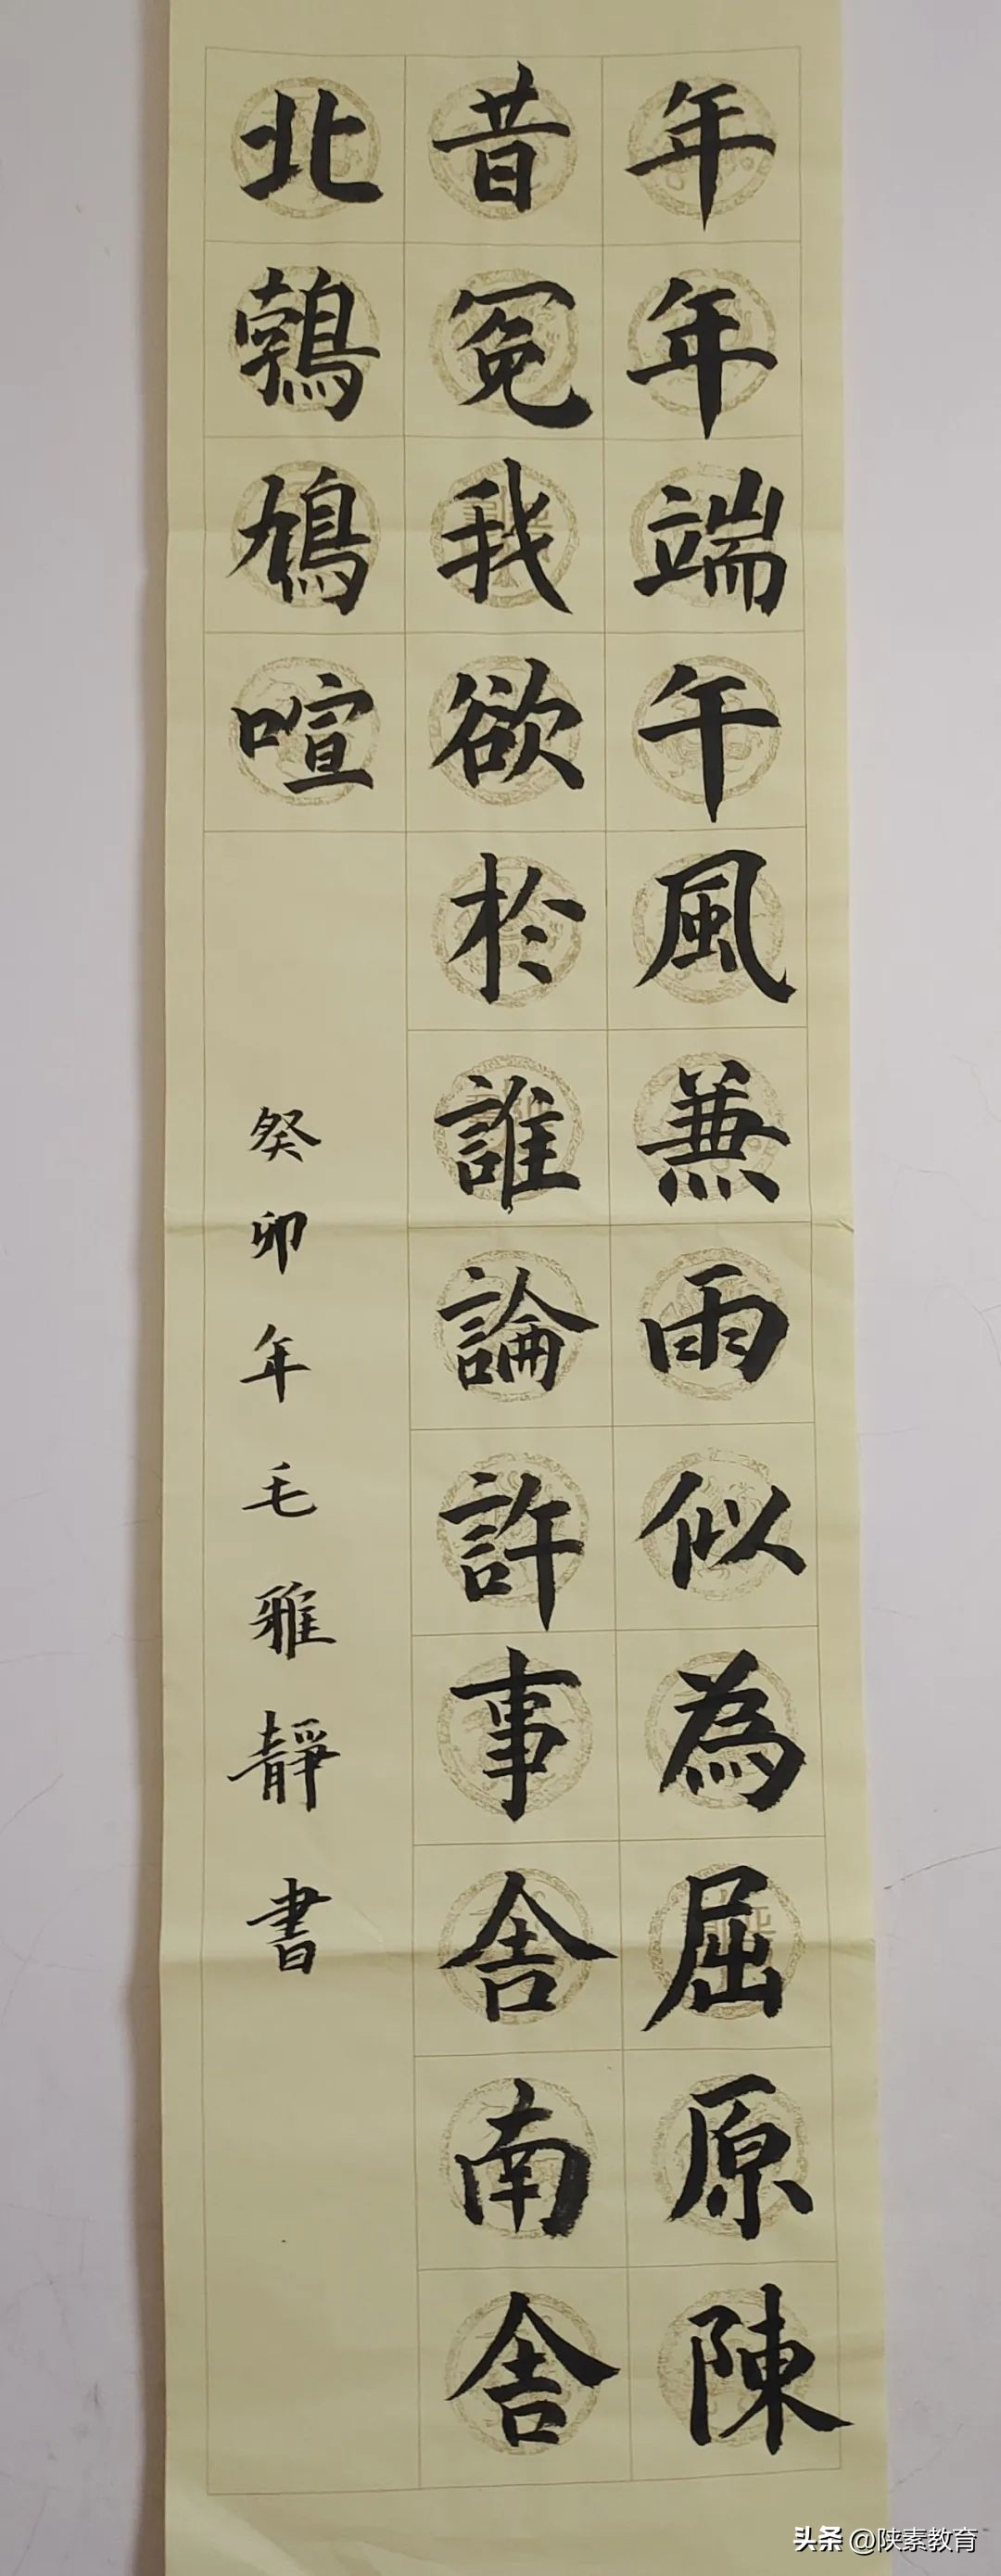 年年端午風兼雨似為屈原陳
昔冤我欲於誰論許事舍南舍
北鵓鳩喧
癸卯年毛雅靜書
头条 @陕素教育